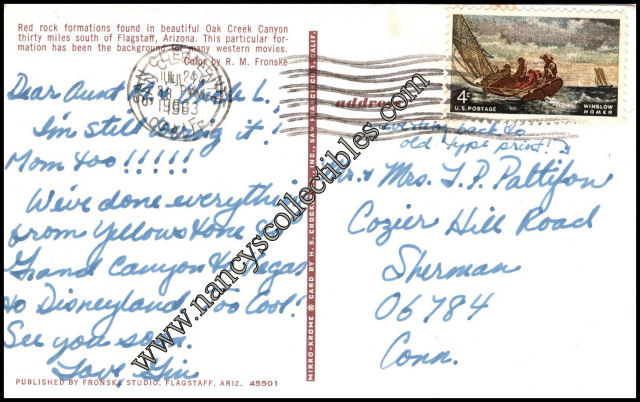 Red rock formations found in beautiful Oak Creek Canyon
thirty miles south of Flagstaff, Arizona. This particular for-
mation has been the background for many western movies.
Color by R. M. Fronske
1963
4¢
U.S. POSTAGE
WINSLOW
HOMER
address
Dear Aunt L.,
I'm still it!
Mom too!!!!!
We've done everything
from Yellowstone
Grand Canyon Vegas
to Disneyland. Too Cool!
See you soon.
Love,
back to
old type print!
Mr. & Mrs. T. P. Pattison
Cozier Hill Road
Sherman
06784
Conn.
MIRRO-KROME ® CARD BY H. S. CROCKER CO., INC., SAN FRANCISCO 1, CALIF.
PUBLISHED BY FRONSKE STUDIO, FLAGSTAFF, ARIZ. 45501
www.nancyscollectibles.com